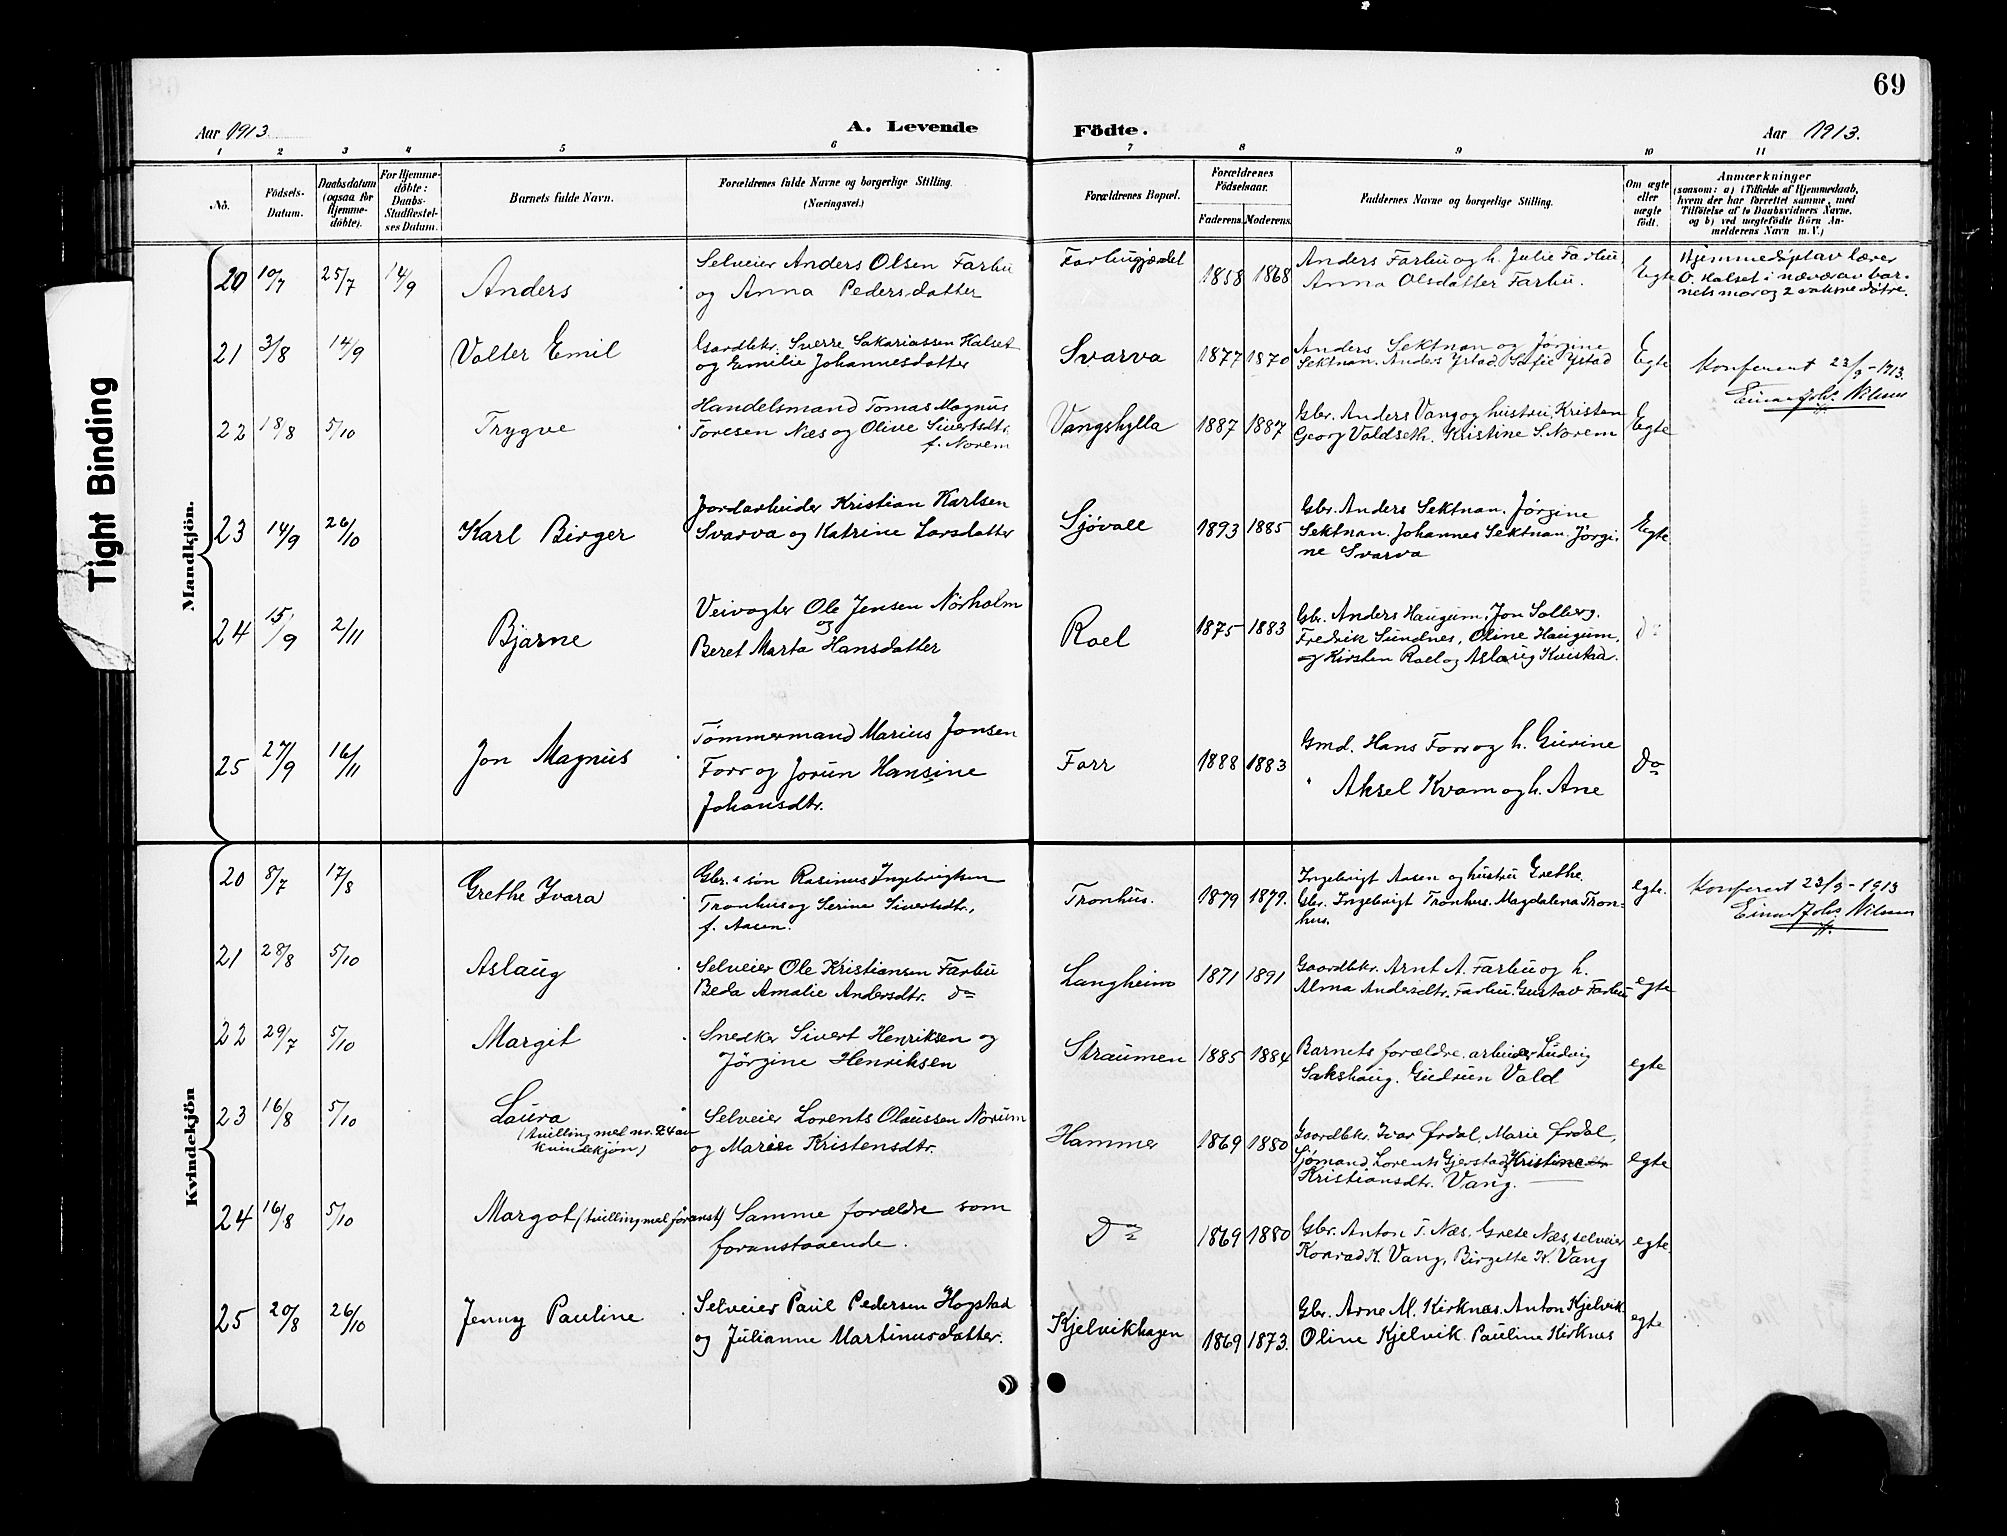 69
Aar 1913.
A. Levende Födte.
Aar 1913.
1 2 3 4 5 6 7 8 9 10 11
No.
Födsels-Datum.
Daabsdatum (ogsaa for Hjemme-döbte).
For Hjemme-döbte: Daabs-Stadfæstel-ses Datum.
Barnets fulde Navn.
Forældrenes fulde Navne og borgerlige Stilling.
(Næringsvei.)
Forældrenes Bopæl.
Forældrenes Födselsaar.
Faderens. Moderens.
Faddernes Navne og borgerlige Stilling.
Om ægte eller uægte födt.
Anmærkninger
(saasom: a) i Tilfælde af Hjemmedaab,
hvem der har forrettet samme, med
Tilföielse af to Daabsvidners Navne,
og b) ved uegtefödte Börn An-
melderens Navn m. V.)
Tight Binding
Mandkjön.
20 10/7 25/7 14/9 Anders
Selveier Anders Olsen Farbu
og Anna Pedersdatter
Farbugjærdet 1858 1868
Anders Farbu og h. Julie Farbu
Anna Olsdatter Farbu.
Egte
Hjemmedøpt av lærer
O. Halset i nævær av bar-
nets mor og 2 voksne døtre.
21 3/8 14/9 Valter Emil
Gardbkr. Sverre Sakariassen Halset
og Emilie Johannesdatter
Svarva 1877 1870
Anders Sektnan og Jørgine
Sektnan. Anders Ystad. Sofie Ystad
Egte
Konferert 23/9-1913.
Einar Johs Nilsen
22 18/8 5/10 Trygve
Handelsmand Tomas Magnus
Toresen Næs og Olive Sivertsdtr.
f. Norem
Vangshylla 1887 1887
Gbr. Anders Vang og hustru, Kristen
Georg Valdseth. Kristine S. Norem
Egte
23 14/9 26/10 Karl Birger
Jordarbeider Kristian Karlsen
Svarva og Katrine Larsdatter
Sjøvold 1893 1885
Gbr. Anders Sektnan. Jørgine
Sektnan. Johannes Sektnan. Jørgi-
ne Svarva
Egte
24 15/9 2/11 Bjarne
Veivogter Ole Jensen Nørholm
og
Beret Marta Hansdatter
Roel 1875 1883
Gbr. Anders Haugum, Jon Solberg.
Fredrik Sundnes, Oline Haugum,
og Kirsten Roel og Aslaug Kvistad.
do
25 27/9 16/11 Jon Magnus
Tømmermand Marius Jonsen
Forr og Jorun Hansine
Johansdtr.
Forr 1888 1883
Gmd. Hans Forr og h. Gurine
" Aksel Kvam og h. Ane
Do
Kvindekjön
20 8/7 17/8 Grethe Ivara
Gbr.s søn Rasinus Ingebrigtsen
Tronhus og Serine Sivertsdtr.,
f. Aasen.
Tronhus. 1879 1879.
Ingebrigt Aasen og hustru Grethe.
Gbr. Ingebrigt Tronhus. Magdalena Tron-
hus.
egte.
Konferert 23/9-1913
Einar Johs Nilsen
21 28/8 5/10 Aslaug
Selveier Ole Kristiansen Farbu
Beda Amalie Andersdtr. do
Langheim 1871 1891
Gaardbkr. Arnt A. Farbu og h.
Alma Andersdtr. Farbu. Gustav Farbu
egte
22 29/7 5/10 Margit
Snedker Sivert Henriksen og
Jørgine Henriksen
Straumen 1885 1884
Barnets forældre. arbeider Ludvig
Sakshaug. Gudrun Vold
egte
23 16/8 5/10 Laura
(tvilling med nr. 24 av
kvindekjøn)
Selveier Lorents Olaussen Norum
og Maren Kristensdtr.
Hammer 1869 1880
Gaardbkr. Ivar Ørdal, Marie Ørdal,
Sjømand Lorents Gjerstad, Kristine
Kristiansdtr. Vang.
egte
24 16/8 5/10 Margot (tvilling med foranst)
Samme forældre som
foranstaaende.
Do 1869 1880
Gbr. Anton T. Næs, Grete Næs, selveier
Konrad K. Vang, Birgitte K. Vang
egte.
25 20/8 26/10 Jenny Pauline
Selveier Paul Pedersen Hogstad
og Julianne Martinusdatter.
Kjelvikhagen 1869 1873.
Gbr. Arne M. Kirknes. Anton Kjelvik
Oline Kjelvik. Pauline Kirknes
egte